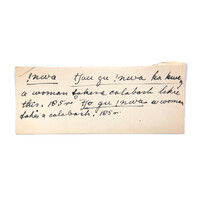 !nwa tʃau gu !nwa ka kwe,
a woman takes a calabash like
this. 1850 tʃo gu !nwa a woman
takes a calabash. 1850